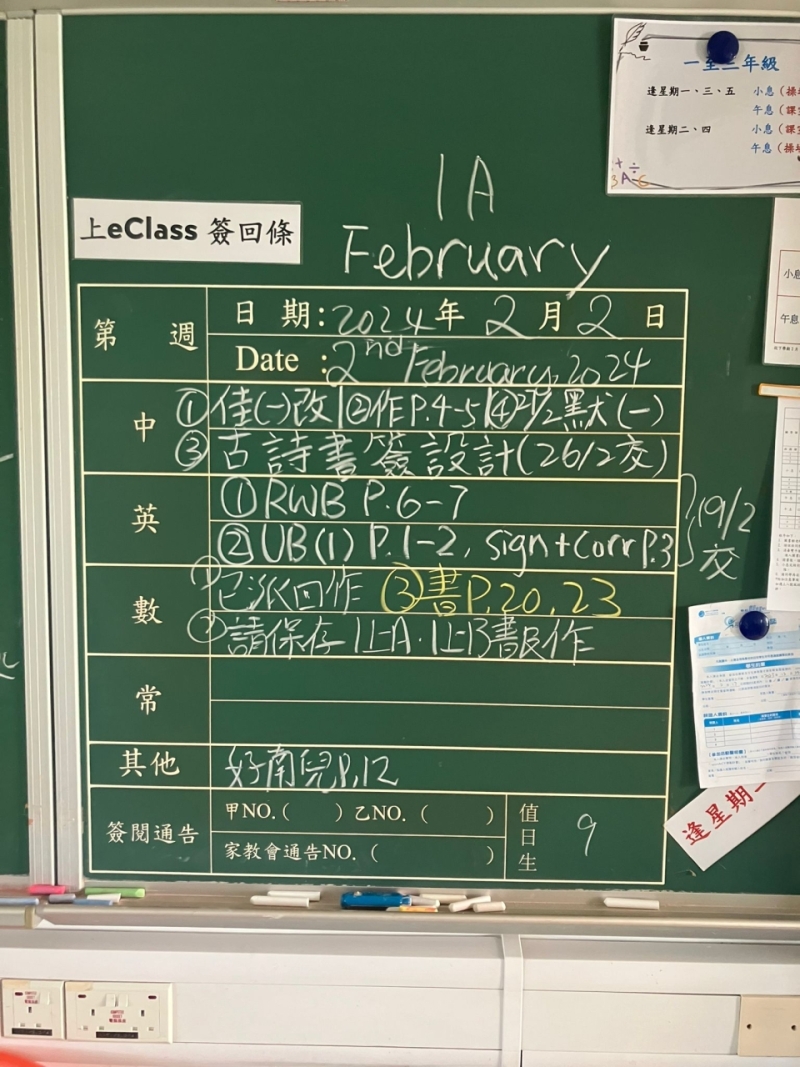 一至三年級
逢星期一、三、五 小息(操場
午息(課室
逢星期二、四 小息(課室
午息(操場
1A
上eClass 簽回條
February
第 週
日 期:2024年 2月 2日
Date :2nd February, 2024
中
①佳(一)改|②作P.4-5|④27/2默(一)
③古詩書簽設計(26/2交)
英
①RWB P.6-7
②UB(1) P.1-2, sign+corr P.3
19/2
交
數
①已派回作 ③書P.20,23
②請保存1上A.1上B書及作
常
其他
好南兒P.12
簽閱通告
甲NO.( ) 乙NO.( )
家教會通告NO.( )
值日生
9
小息
午息
逢星期二